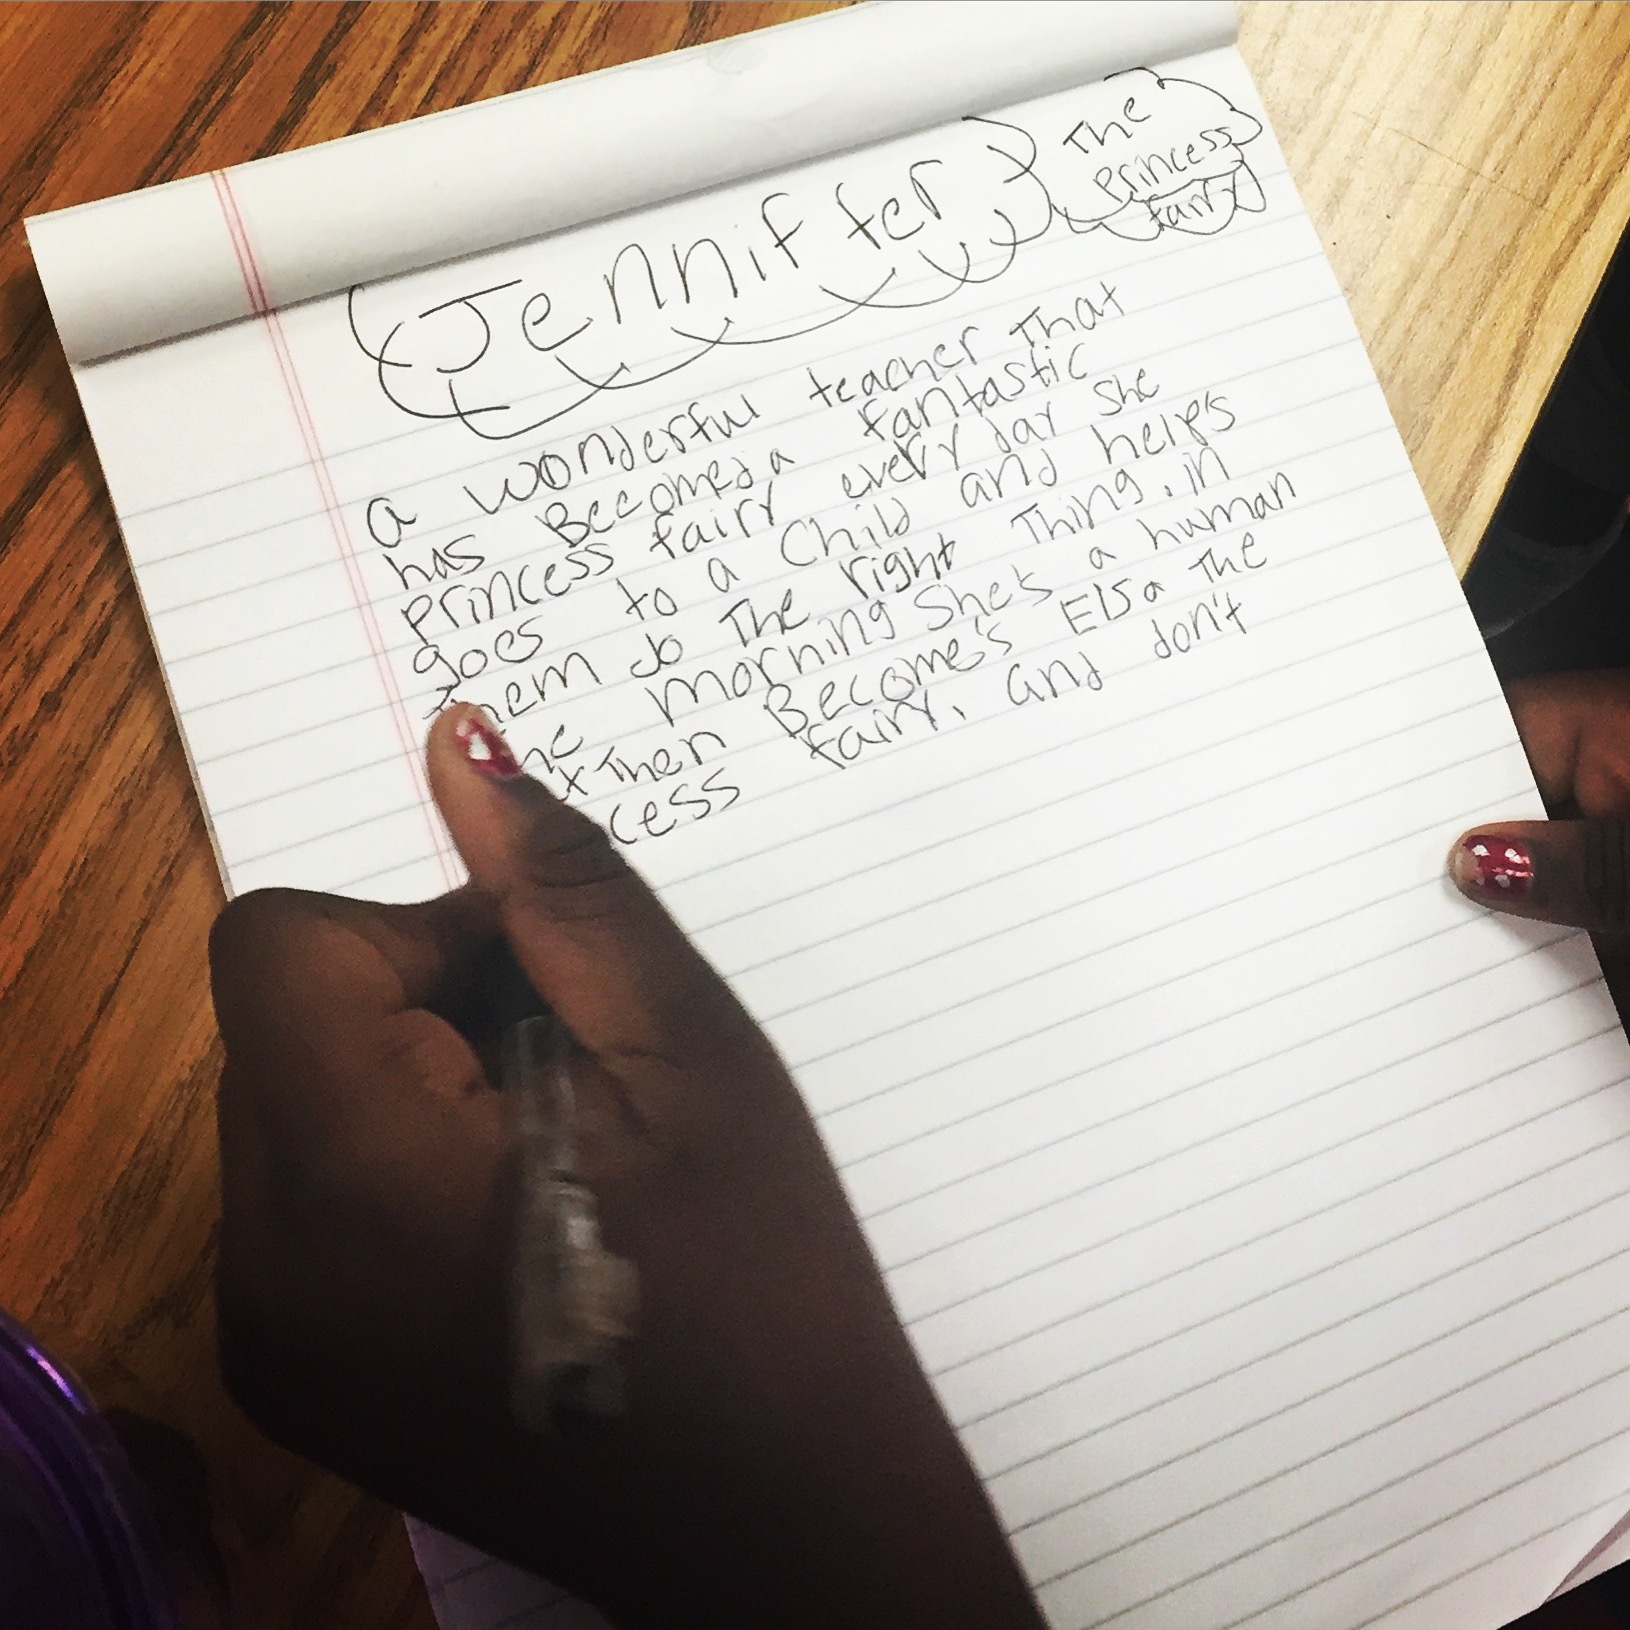 Jenniffer
The
Princess
fairy
a wonderful teacher That
has Becomed a fantastic
Princess fairy every day she
goes to a Child and help's
them do The right Thing. in
he morning She's a human
Then Become's Elsa The
cess fairy. and don't